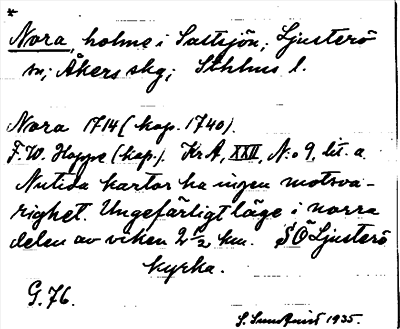 *
Nora, holme i Saltsjön; Ljusterö
sn; Åkers skg; Sthlms l.
Nora 1714 (kop. 1740).
F. W. Hoppe (kop.). KrA, XXII, N:o 9, lit. a.
Nutida kartor ha ingen motsva-
righet. Ungefärligt läge i norra
delen av viken 2 ½ km. SÖ Ljusterö
kyrka.
G. 76.
S. Sundqvist 1935.